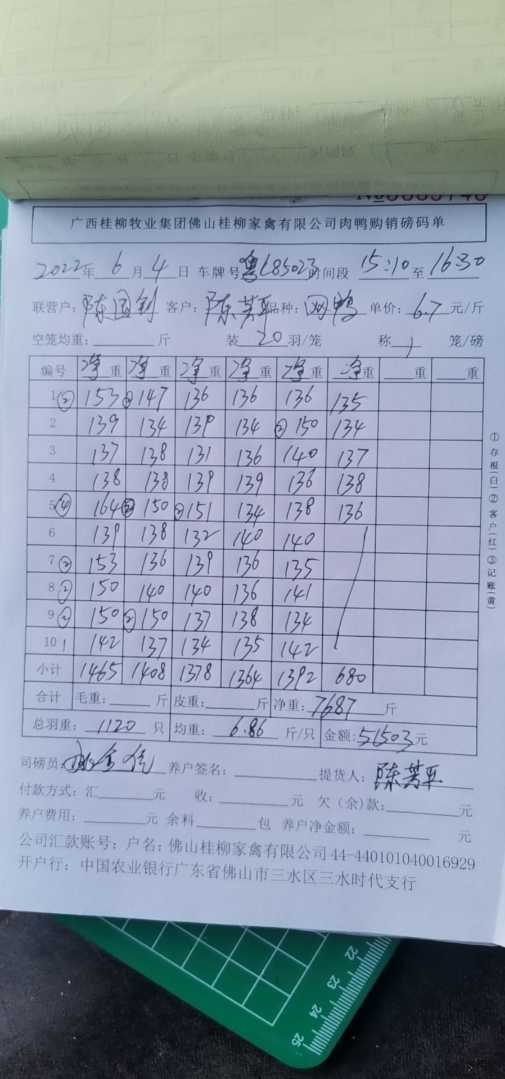 广西桂柳牧业集团佛山桂柳家禽有限公司肉鸭购销磅码单
2022年 6 月 4 日 车牌号 粤L85023 时间段 15:10 至 16:30
联营户: 陈国钊 客户: 陈芳平 品种: 肉鸭 单价: 6.7 元/斤
空笼均重: 斤 装 20 羽/笼 称 1 笼/磅
编号 净重 净重 净重 净重 净重 净重 重 重
1 ② 153 ② 147 136 136 136 135
2 139 134 139 134 ② 150 134
3 137 138 131 136 140 137
4 138 138 139 139 136 138
5 ④ 164 ② 150 ② 151 134 138 136
6 139 138 132 140 140
7 ② 153 136 139 136 135
8 ② 150 140 140 136 141
9 ② 150 ② 150 137 138 134
10 1 142 137 134 135 142
小计 1465 1408 1378 1364 1392 680
合计 毛重: 斤 皮重: 斤 净重: 7687 斤
总羽重: 1120 只 均重: 6.86 斤/只 金额: 51503 元
司磅员: 养户签名: 提货人: 陈芳平
付款方式: 汇 元 收: 元 欠(余)款: 元
养户费用: 元 余料 包 养户净金额: 元
公司汇款账号: 户名: 佛山桂柳家禽有限公司 44-440101040016929
开户行: 中国农业银行广东省佛山市三水区三水时代支行
①存根(白)②客户(红)③记账(黄)
22
23
24
25